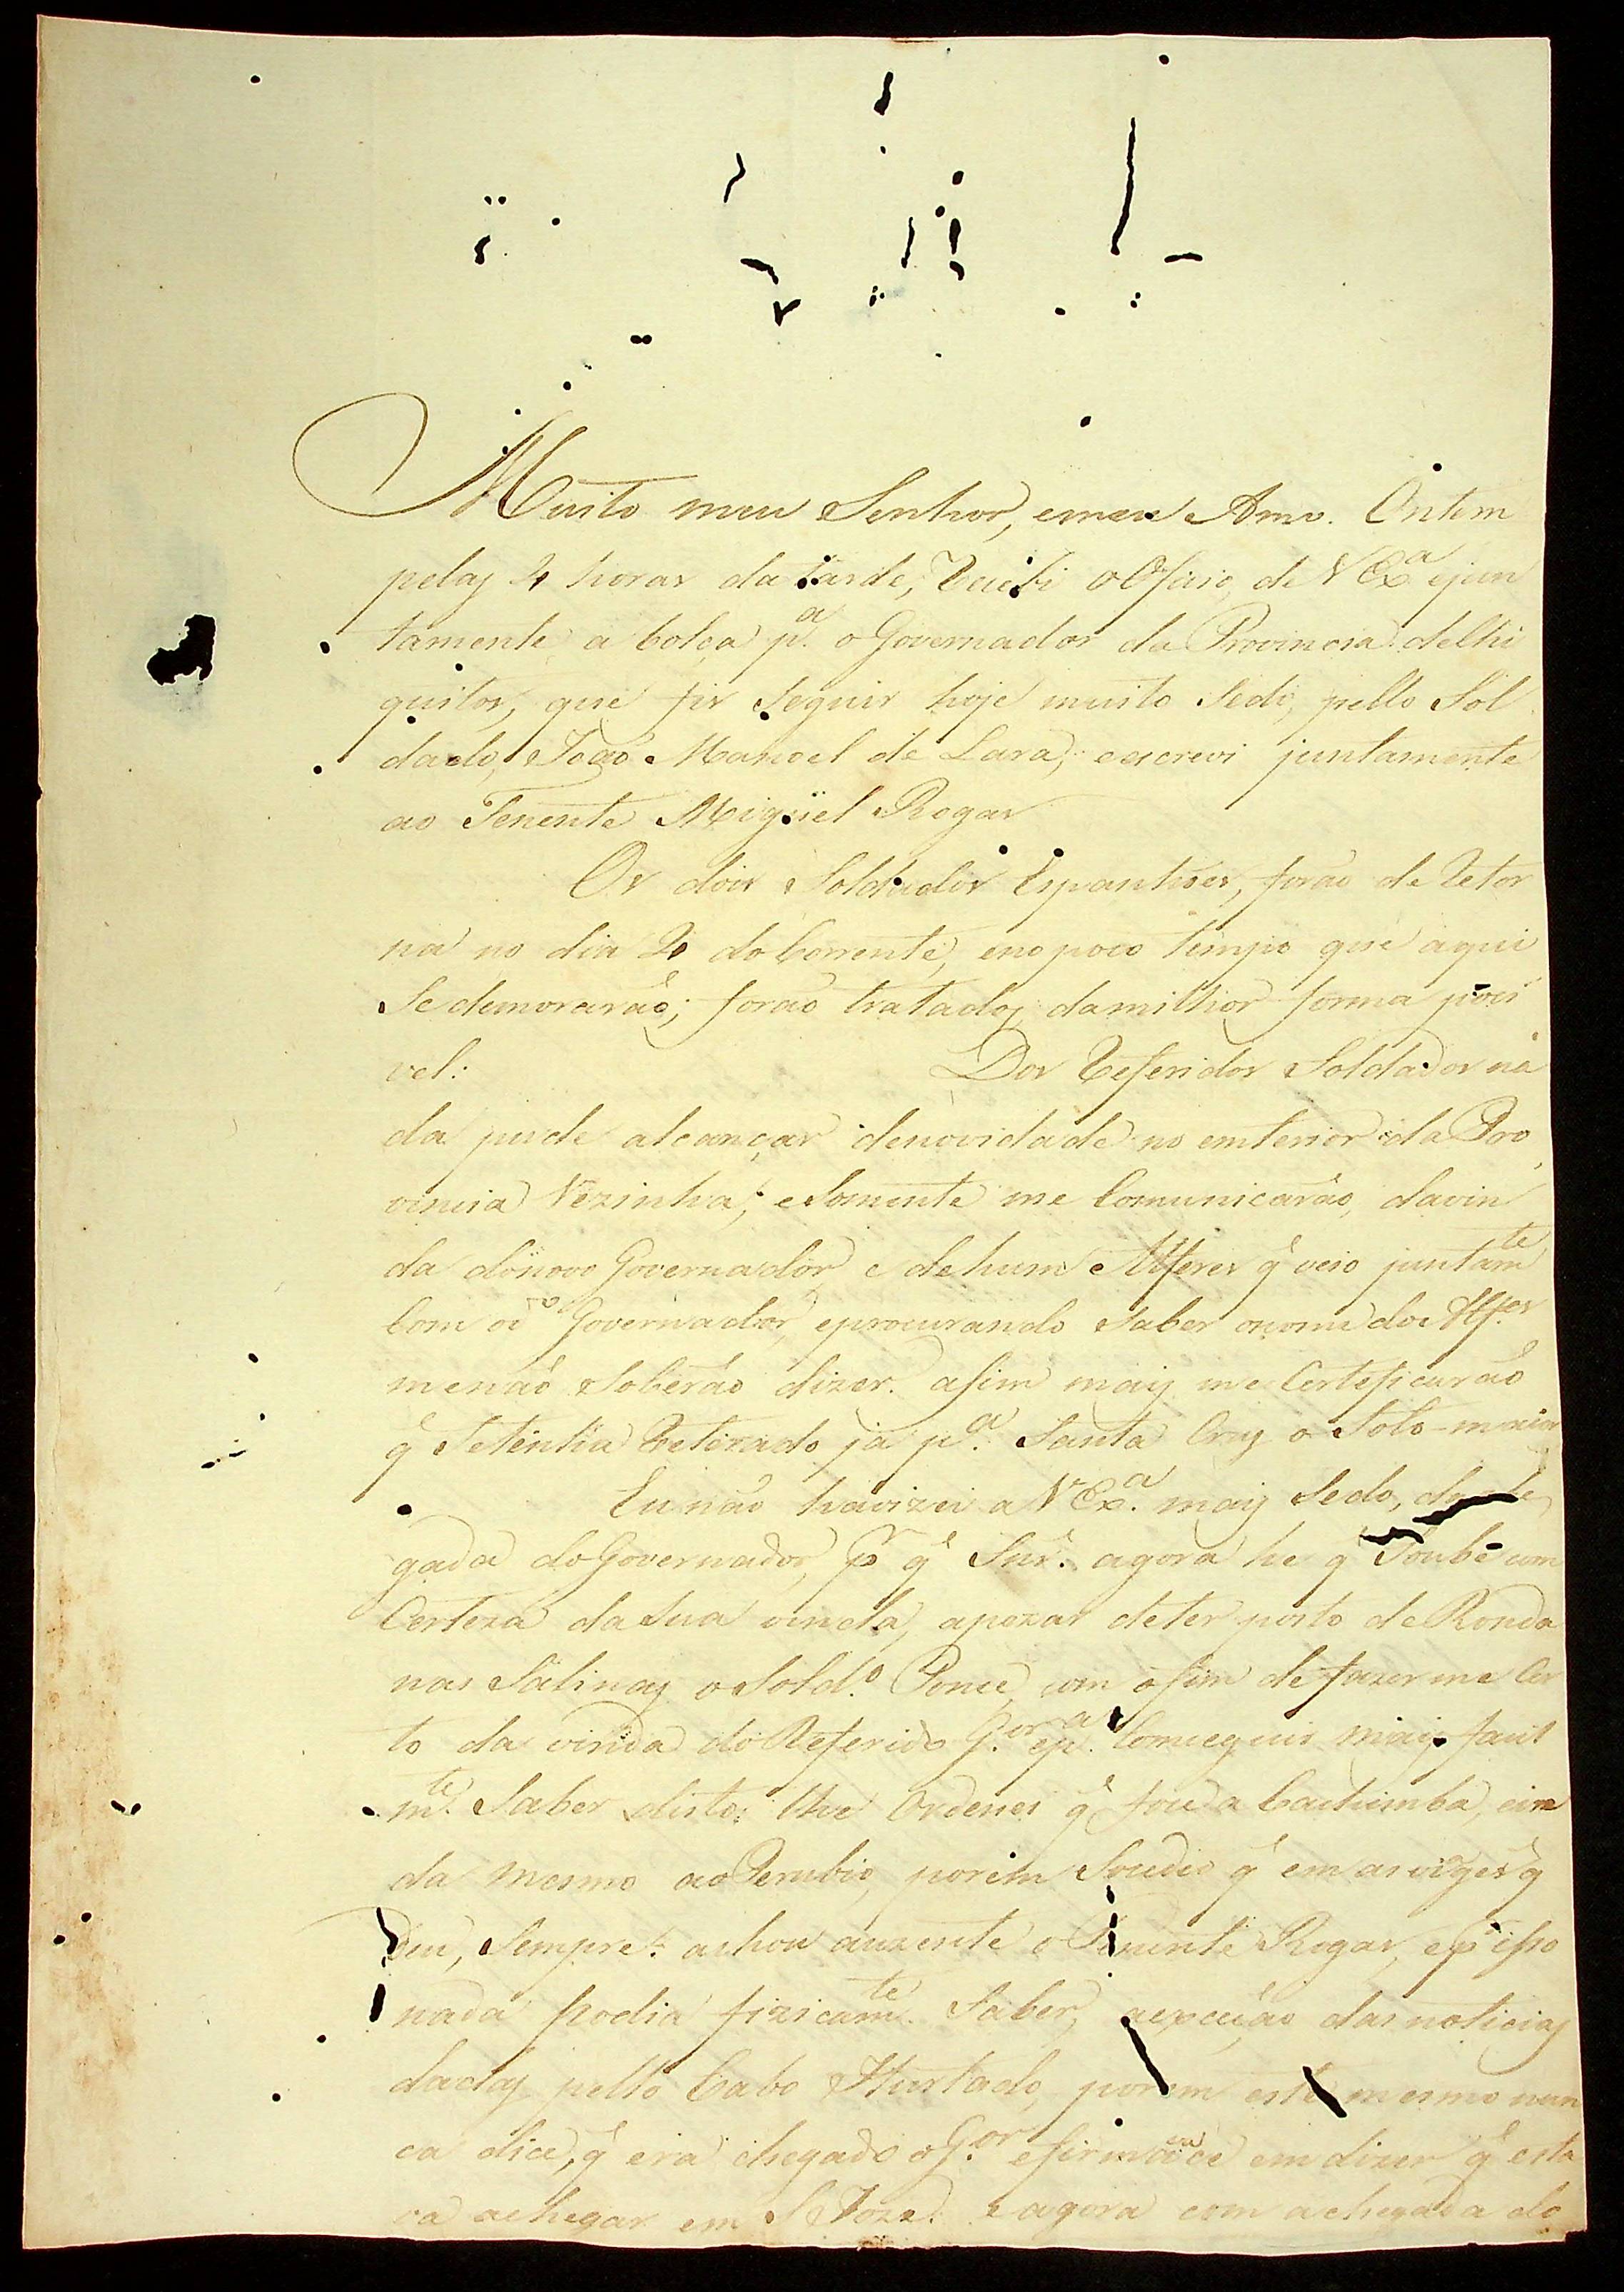 Muito meu Senhor, emeu Amo. Ontem
pelas 4 horas da tarde, Recebi o Oficio, de VExª ejun
tamente a bolça pª o Governador da Provincia deChi
quitos, que fis seguir hoje muito Sedo, pello Sol
dado, João Manoel de Lara, eescrevi juntamente
ao Tenente Miguel Rogar
Os dois Soldados Espanhoes, forão de Retor
na no dia 2 do Corrente, eno poco tempo que aqui
Se demorarão; forão tratados damilhor forma poci
vel: Dos Referidos Soldados na
da pude alcançar denovidade no emterior da Pro
vincia Vezinha; eSomente me Comunicarão, davin
da donovo Governador e dehum Alferes q̃ veio juntamte
Com od.º Governador, eprocurando Saber onome do Alf.es
menão Soberão dizer. asim mais me Certeficarão
q̃ Setentia Retirado ja pª. Santa Cruz o Soto-maior
Eu não havizei a VExª. mais Sedo, da
gada do Governador, p.r q̃ Snr̃. agora he q̃ Soube com
Certeza da Sua vinda, apezar deter posto de Ronda
nas Salinas o Sold.º Ponce, com ofim de fazer me Cer
to da vinda do Referido G.or epª. Conseguir mais facil
m.te Saber disto; lhe Ordenei q̃ fose a Cachimba, ein
da mesmo ao Perubio, porem Sucdeo q̃ em as viages q̃
deu, Sempre achou auzente o Tenente Rogar, ep.r iso
nada podia fizicam.te Saber, aexceição das noticias
dadas pello Cabo Hurtado, porem este mesmo nun
ca dice, q̃ era chegado oG.or efirmavace em dizer q̃ esta
va achegar em S Joze. e agora com achegada do